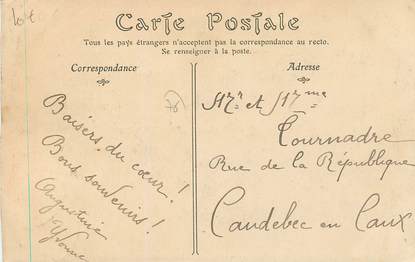 10 €
Carte Postale
Tous les pays étrangers n'acceptent pas la correspondance au recto.
Se renseigner à la poste.
Correspondance
Adresse
Baisers du cœur !
Bons souvenirs !
Augustine
Yvonne
76
Mr et Mme
Tournadre
Rue de la République
Caudebec en Caux